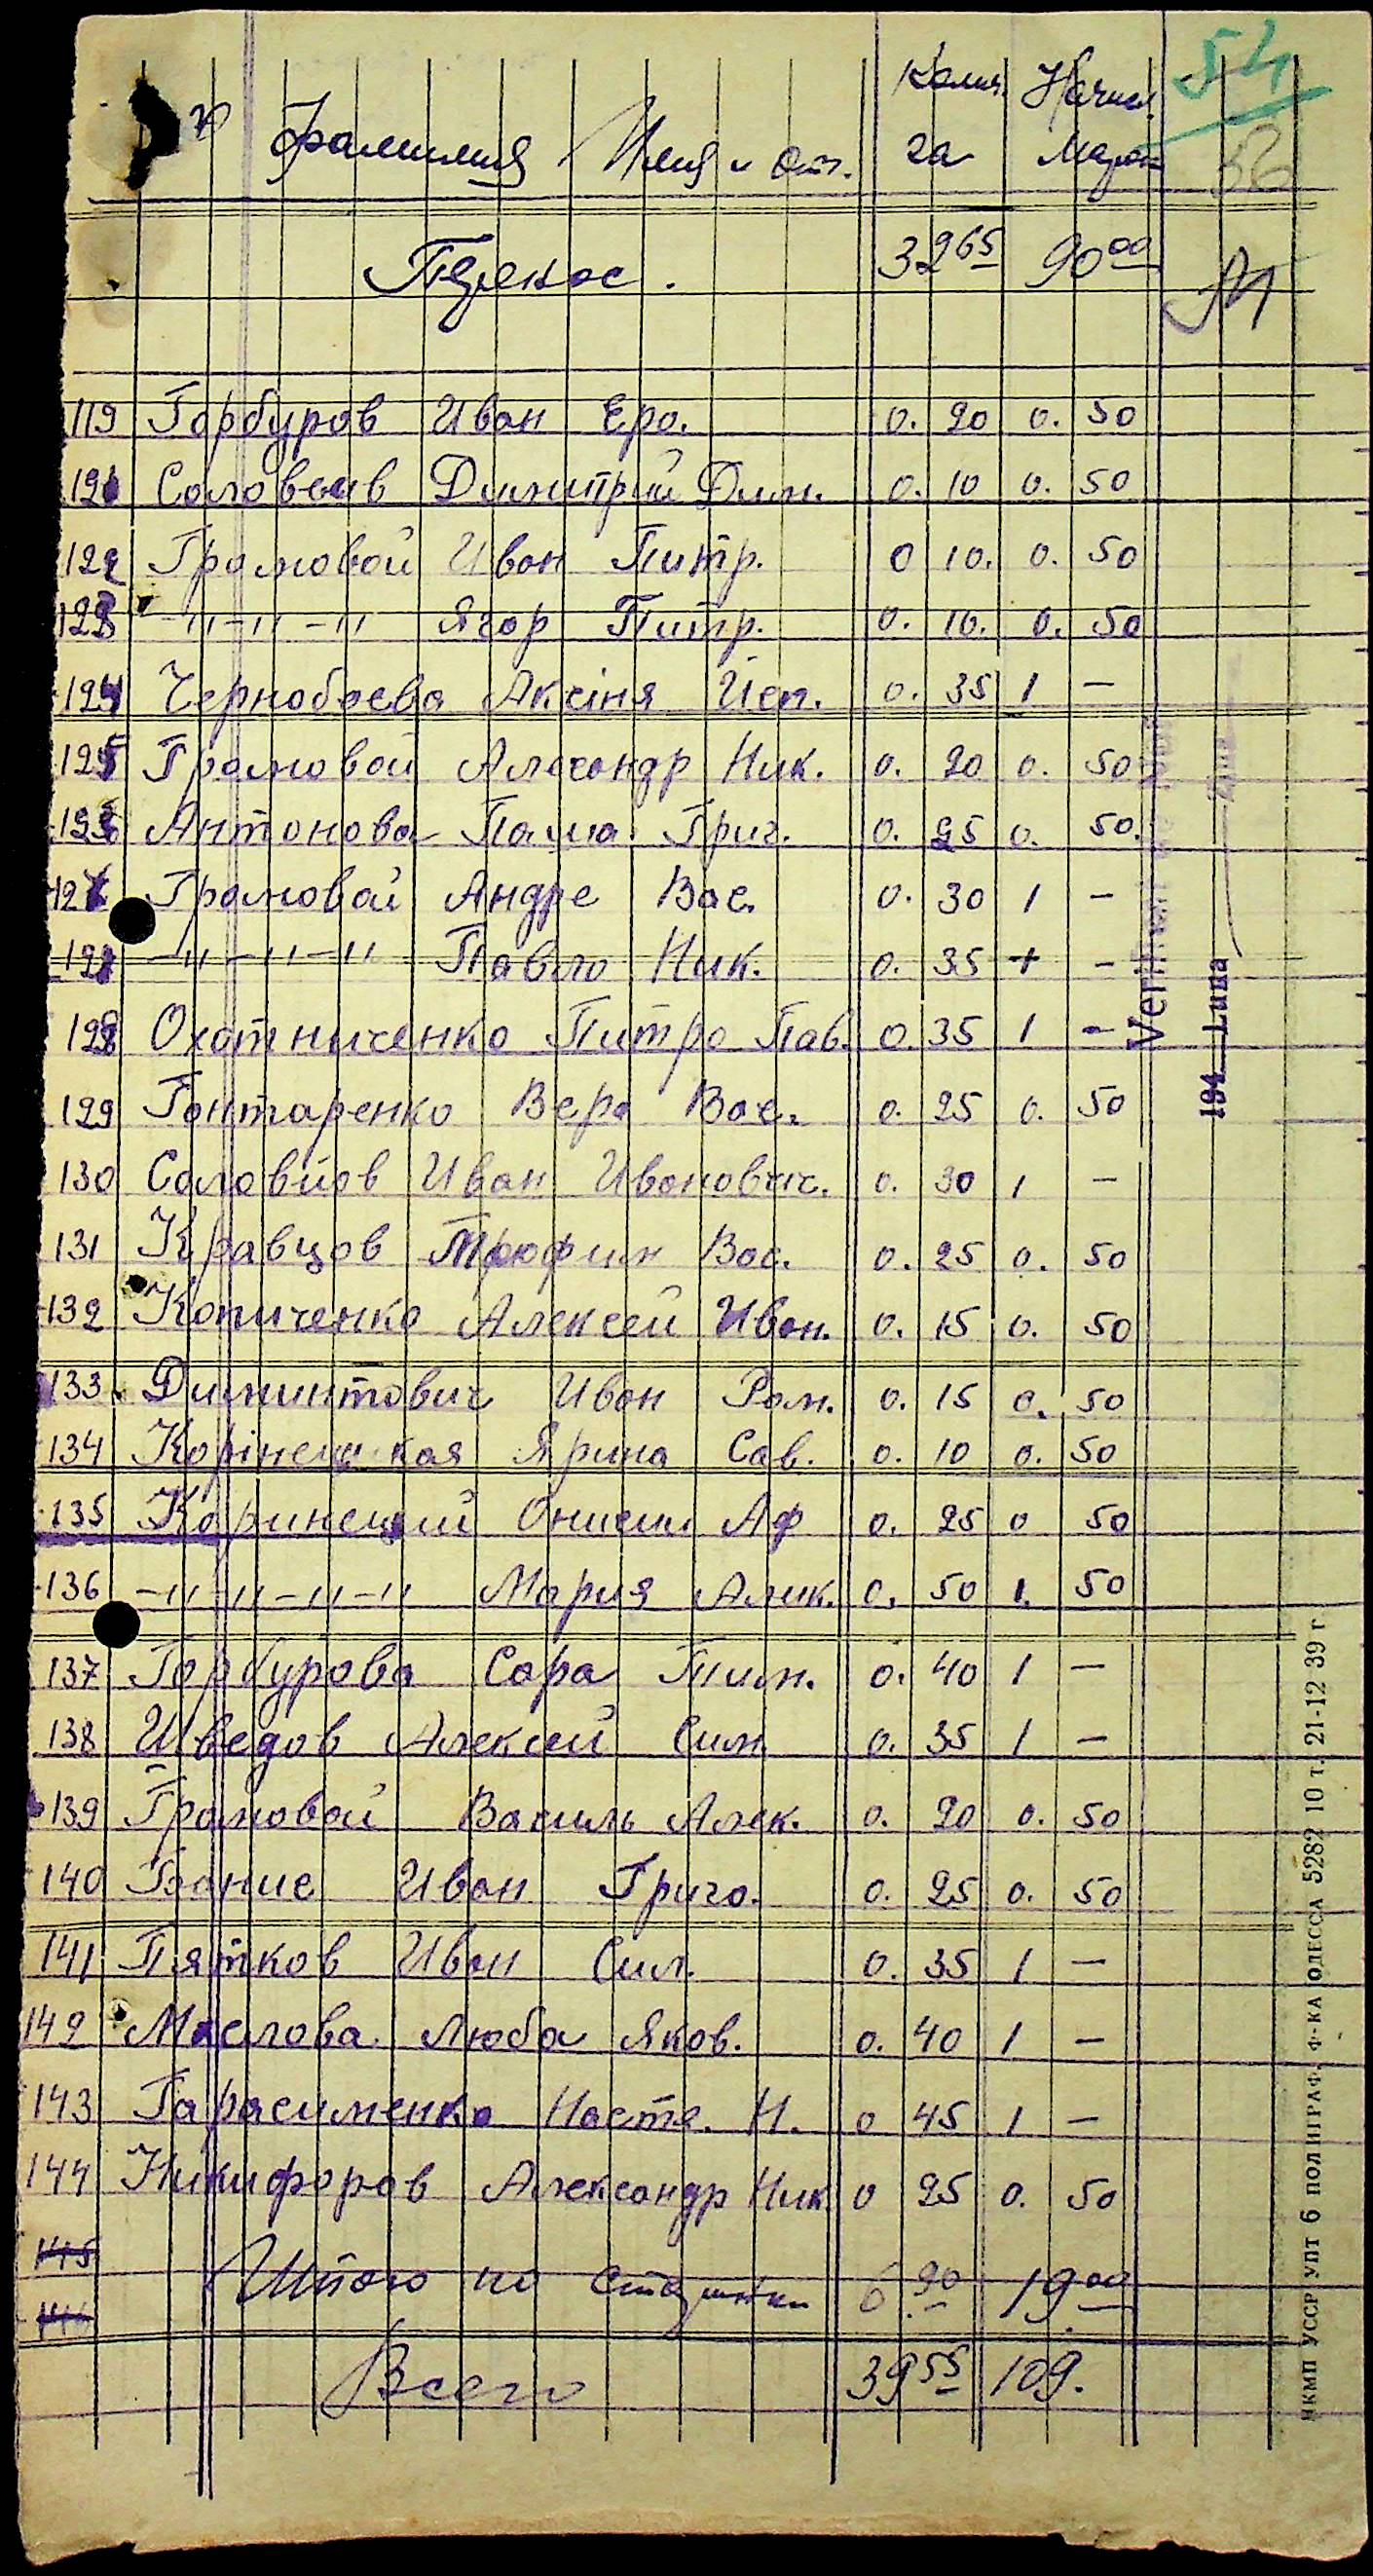 54
56
№ Фамилия Имя и От. Колич. га Начисл. Марок
Перенос. 32 65 90 00
119 Горбуров Иван Еро. 0. 20 0. 50
120 Соловьев Димитрий Дим. 0. 10 0. 50
122 Громовой Иван Питр. 0 10. 0. 50
123 -"-"-" Ягор Питр. 0. 10. 0. 50
124 Чернобаева Аксіня Иоп. 0. 35 1 —
125 Громовой Алексондр Ник. 0. 20 0. 50
126 Антонова Паша Григ. 0. 25 0. 50.
127 Громовой Андре Вас. 0. 30 1 —
128 -"-"-" Павло Ник. 0. 35 1 —
128 Охотниченко Питро Пав. 0. 35 1 —
129 Гонтаренко Вера Вас. 0. 25 0. 50
130 Соловйов Иван Иванович. 0. 30 1 —
131 Кравцов Трофим Вас. 0. 25 0. 50
132 Копиченко Алексей Иван. 0. 15 0. 50
133 Диминтович Иван Ром. 0. 15 0. 50
134 Корінецкая Ярина Сав. 0. 10 0. 50
135 Коринецкий Онисим Аф 0. 25 0 50
136 -"-"-"-" Мария Алик. 0. 50 1. 50
137 Горбурова Сара Тим. 0. 40 1 —
138 Шведов Алексей Сим. 0. 35 1 —
139 Громовой Василь Алек. 0. 20 0. 50
140 Бание Иван Григо. 0. 25 0. 50
141 Пятков Иван Сил. 0. 35 1 —
142 Маслова Люба Яков. 0. 40 1 —
143 Гарасименко Настя. Н. 0 45 1 —
144 Никифоров Александр Ник 0 25 0. 50
145
146
Итого по странички 6. 90 19 00
Всего 39 55 109.
Verificat
194 Luna
НКМП УССР УПТ 6 ПОЛИГРАФ. Ф-КА ОДЕССА 5282 10 т. 21-12 39 г